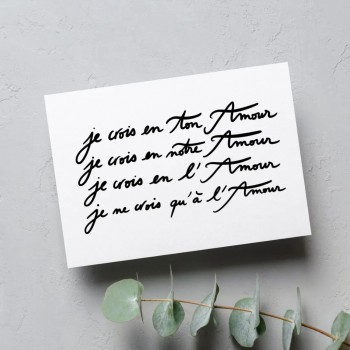 je crois en ton Amour
je crois en notre Amour
je crois en l'Amour
je ne crois qu'à l'Amour